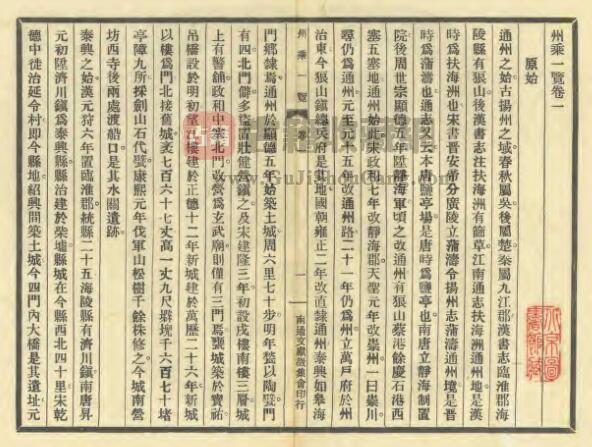 州乘一覽卷一
原始
通州之始古揚州之域春秋屬吳後屬楚秦屬九江郡漢書志臨淮郡海
陵縣有狼山後漢書志注扶海洲有簡草江南通志扶海洲通州地是漢
時爲扶海洲也宋書晉安帝分廣陵立蒲濤令揚州志蒲濤通州境是晉
時爲蒲濤也通志又云本唐鹽亭場是唐時爲鹽亭也南唐立靜海制置
院後周世宗顯德五年陞靜海軍頃之改通州有狼山蔡港餘慶石港西
寨五寨地通州始此宋政和七年改靜海郡天聖元年改崇州一曰崇川
尋仍爲通州元至元十五年改通州路二十一年仍爲州立萬戶府於州
治東今狼山鎮總兵府是其地國朝雍正二年改直隸通州泰興如皋海
州乘一覽
卷一
一
南通文獻徵集會印行
門鄉隸焉通州於顯德五年始築土城周六里七十步明年甃以陶甓門
有四北門儕多盜置壯健營鎮之及宋建隆三年初設戌樓南樓三層城
上有警鋪政和中塞北門改營爲玄武廟則僅有三門焉甕城築於寶祐
吊橋設於明初望山樓建於正德十二年新城建於萬曆二十六年
以樓爲門北接舊城袤七百六十七丈高一丈九尺堞堍千六百七十堵
亭障九所採劍山石代甓康熙元年伐軍山松樹千餘株修之今城南營
坊西寺後兩處渡船口是其水關遺跡
泰興之始漢元狩六年置臨淮郡統縣二十五海陵縣有濟川鎮南唐昇
元初陞濟川鎮爲泰興縣縣治建於柴墟縣城在今縣西北四十里宋乾
德中徙治延令村即今縣地紹興間築土城今四門內大橋是其遺址元
古籍
www.GuJiShouCang.com